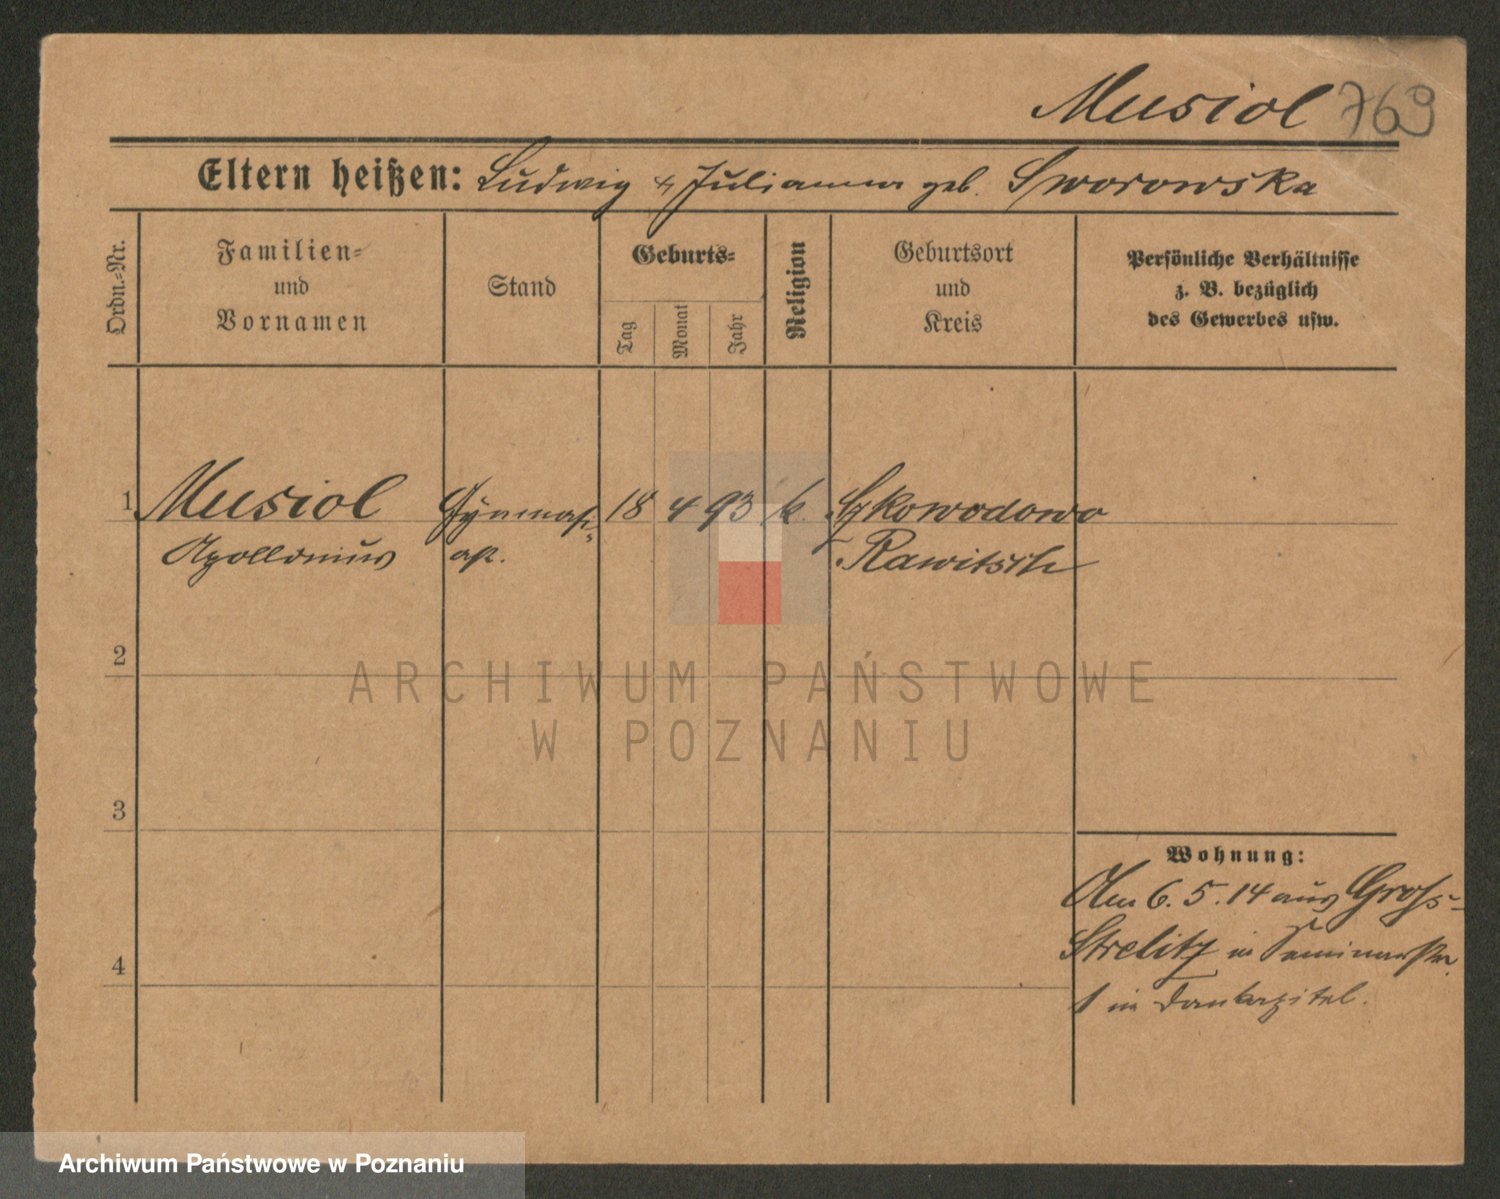 Musiol 769
Eltern heißen: Ludwig & Julianna geb. Sworowska
Ordn.-Nr.
Familien-
und
Vornamen
Stand
Geburts-
Tag
Monat
Jahr
Religion
Geburtsort
und
Kreis
Persönliche Verhältnisse
z. B. bezüglich
des Gewerbes usw.
1 Musiol 18 4 93 k.
Apollonius Rawitsch
2
ARCHIWUM PAŃSTWOWE
W POZNANIU
3
Wohnung:
Am 6. 5. 14 aus Gross-
Strelitz in Seminarstr.
4
1 in
Archiwum Państwowe w Poznaniu